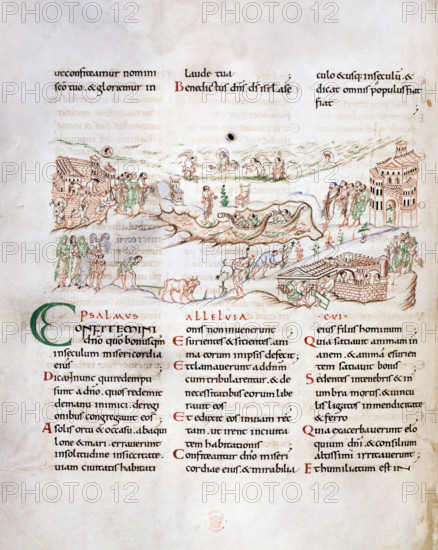 ut confiteamur nomini
sc̄o tuo . & gloriemur in
laude tua
Benedictus dn̄s ds̄ isrł. ase
culo & usq; inseculū . &
dicat omnis populus fiat
fiat
PSALMUS ALLELUIA CVI.
CONFITEMINI
dn̄o quō bonus qm̄
inseculum misericordia
eius
Dicant nunc qui redempti
sunt a dn̄o . quos redemit
demanu inimici . deregi
onibus congregavit eos
A solis ortu & occasu . ab aqui
lone & mari . erraverunt
insolitudine insiccitate .
viam civitatis habitati
onis non invenerunt
Esurientes & sitientes . ani
ma eorum inipsis defecit ;
Et clamaverunt ad dn̄m
cum tribularentur . & de
necessitatibus eorum libe
ravit eos
Et eduxit eos in viam rec
tam . ut irent in civita
tem habitationis
Confiteantur dn̄o miseri
cordiae eius . & mirabilia
eius filiis hominum
Quia satiavit animam in
anem . & anima esurien
tem satiavit bonis
Sedentes intenebris & in
umbra mortis . & vinc
tos inmendicitate
& ferro
Quia exacerbaverunt elo
quium dn̄i . & consilium
altissimi irritaverunt
Et humiliatum est in